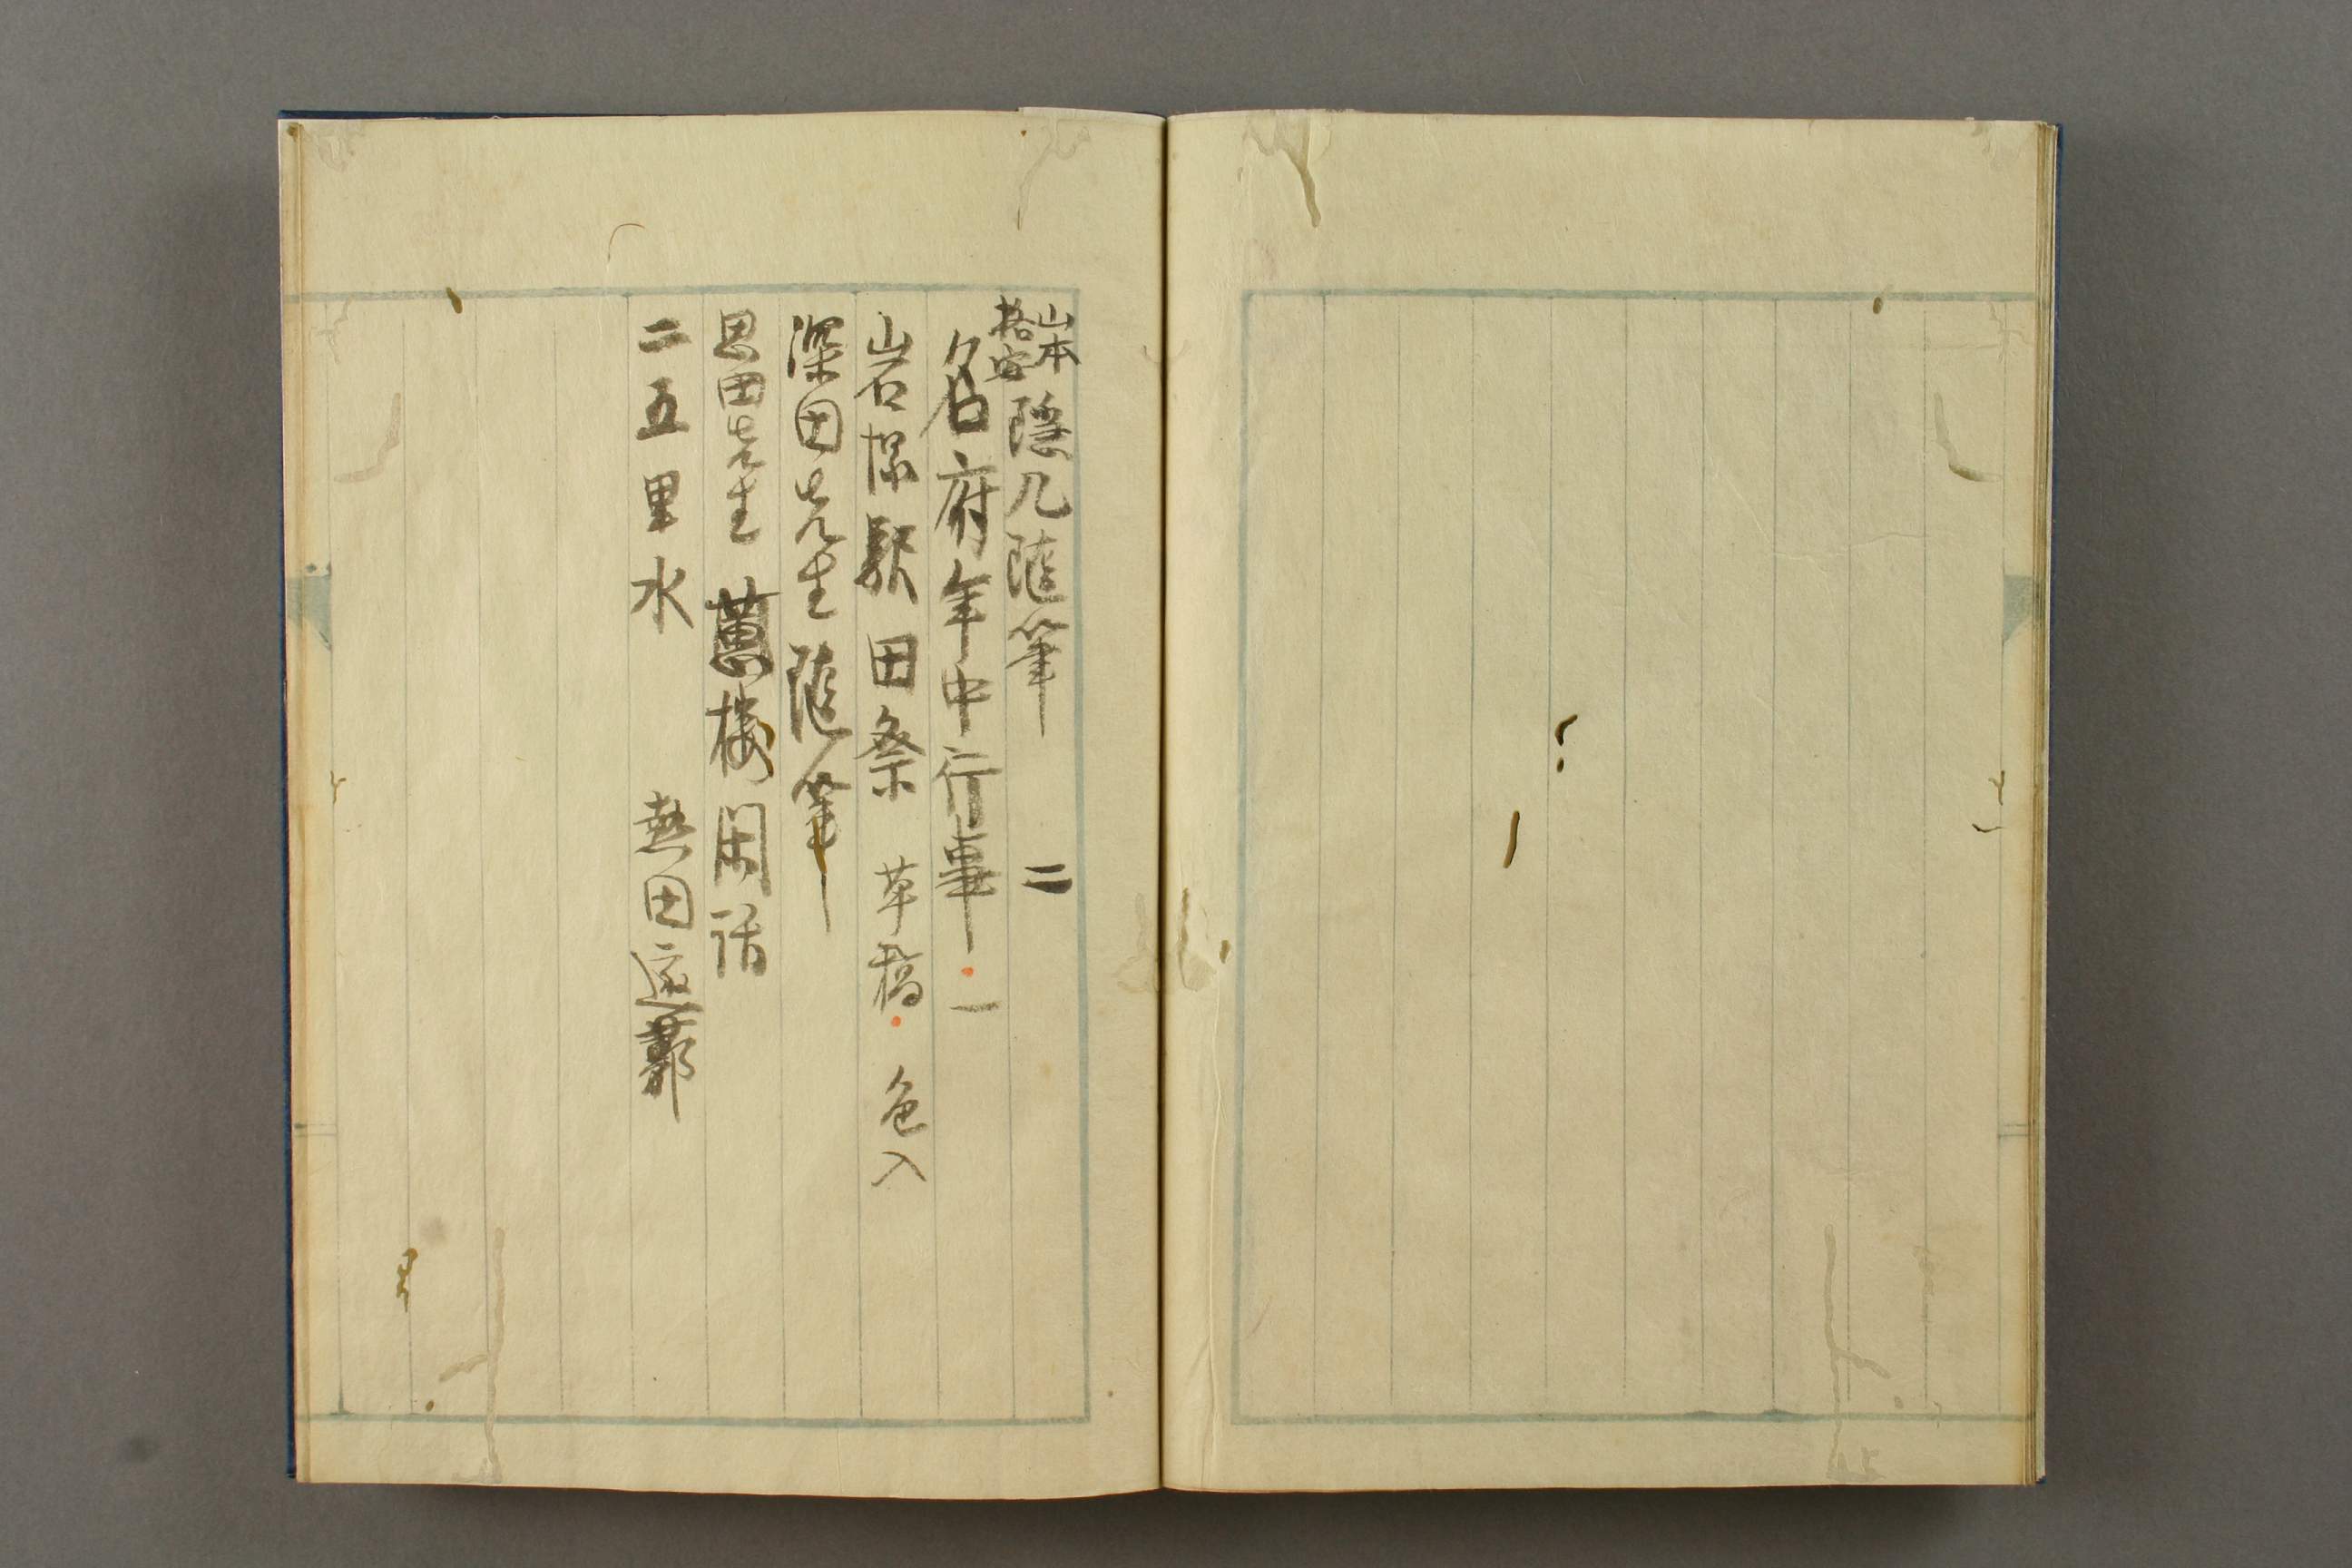 山本
格安
隠几随筆　二
名府年中行事・一
岩塚歌田祭　草稿・色入
深田先生随筆
恩田先生　蕙楼閑話
二五里水　熱田遊郭